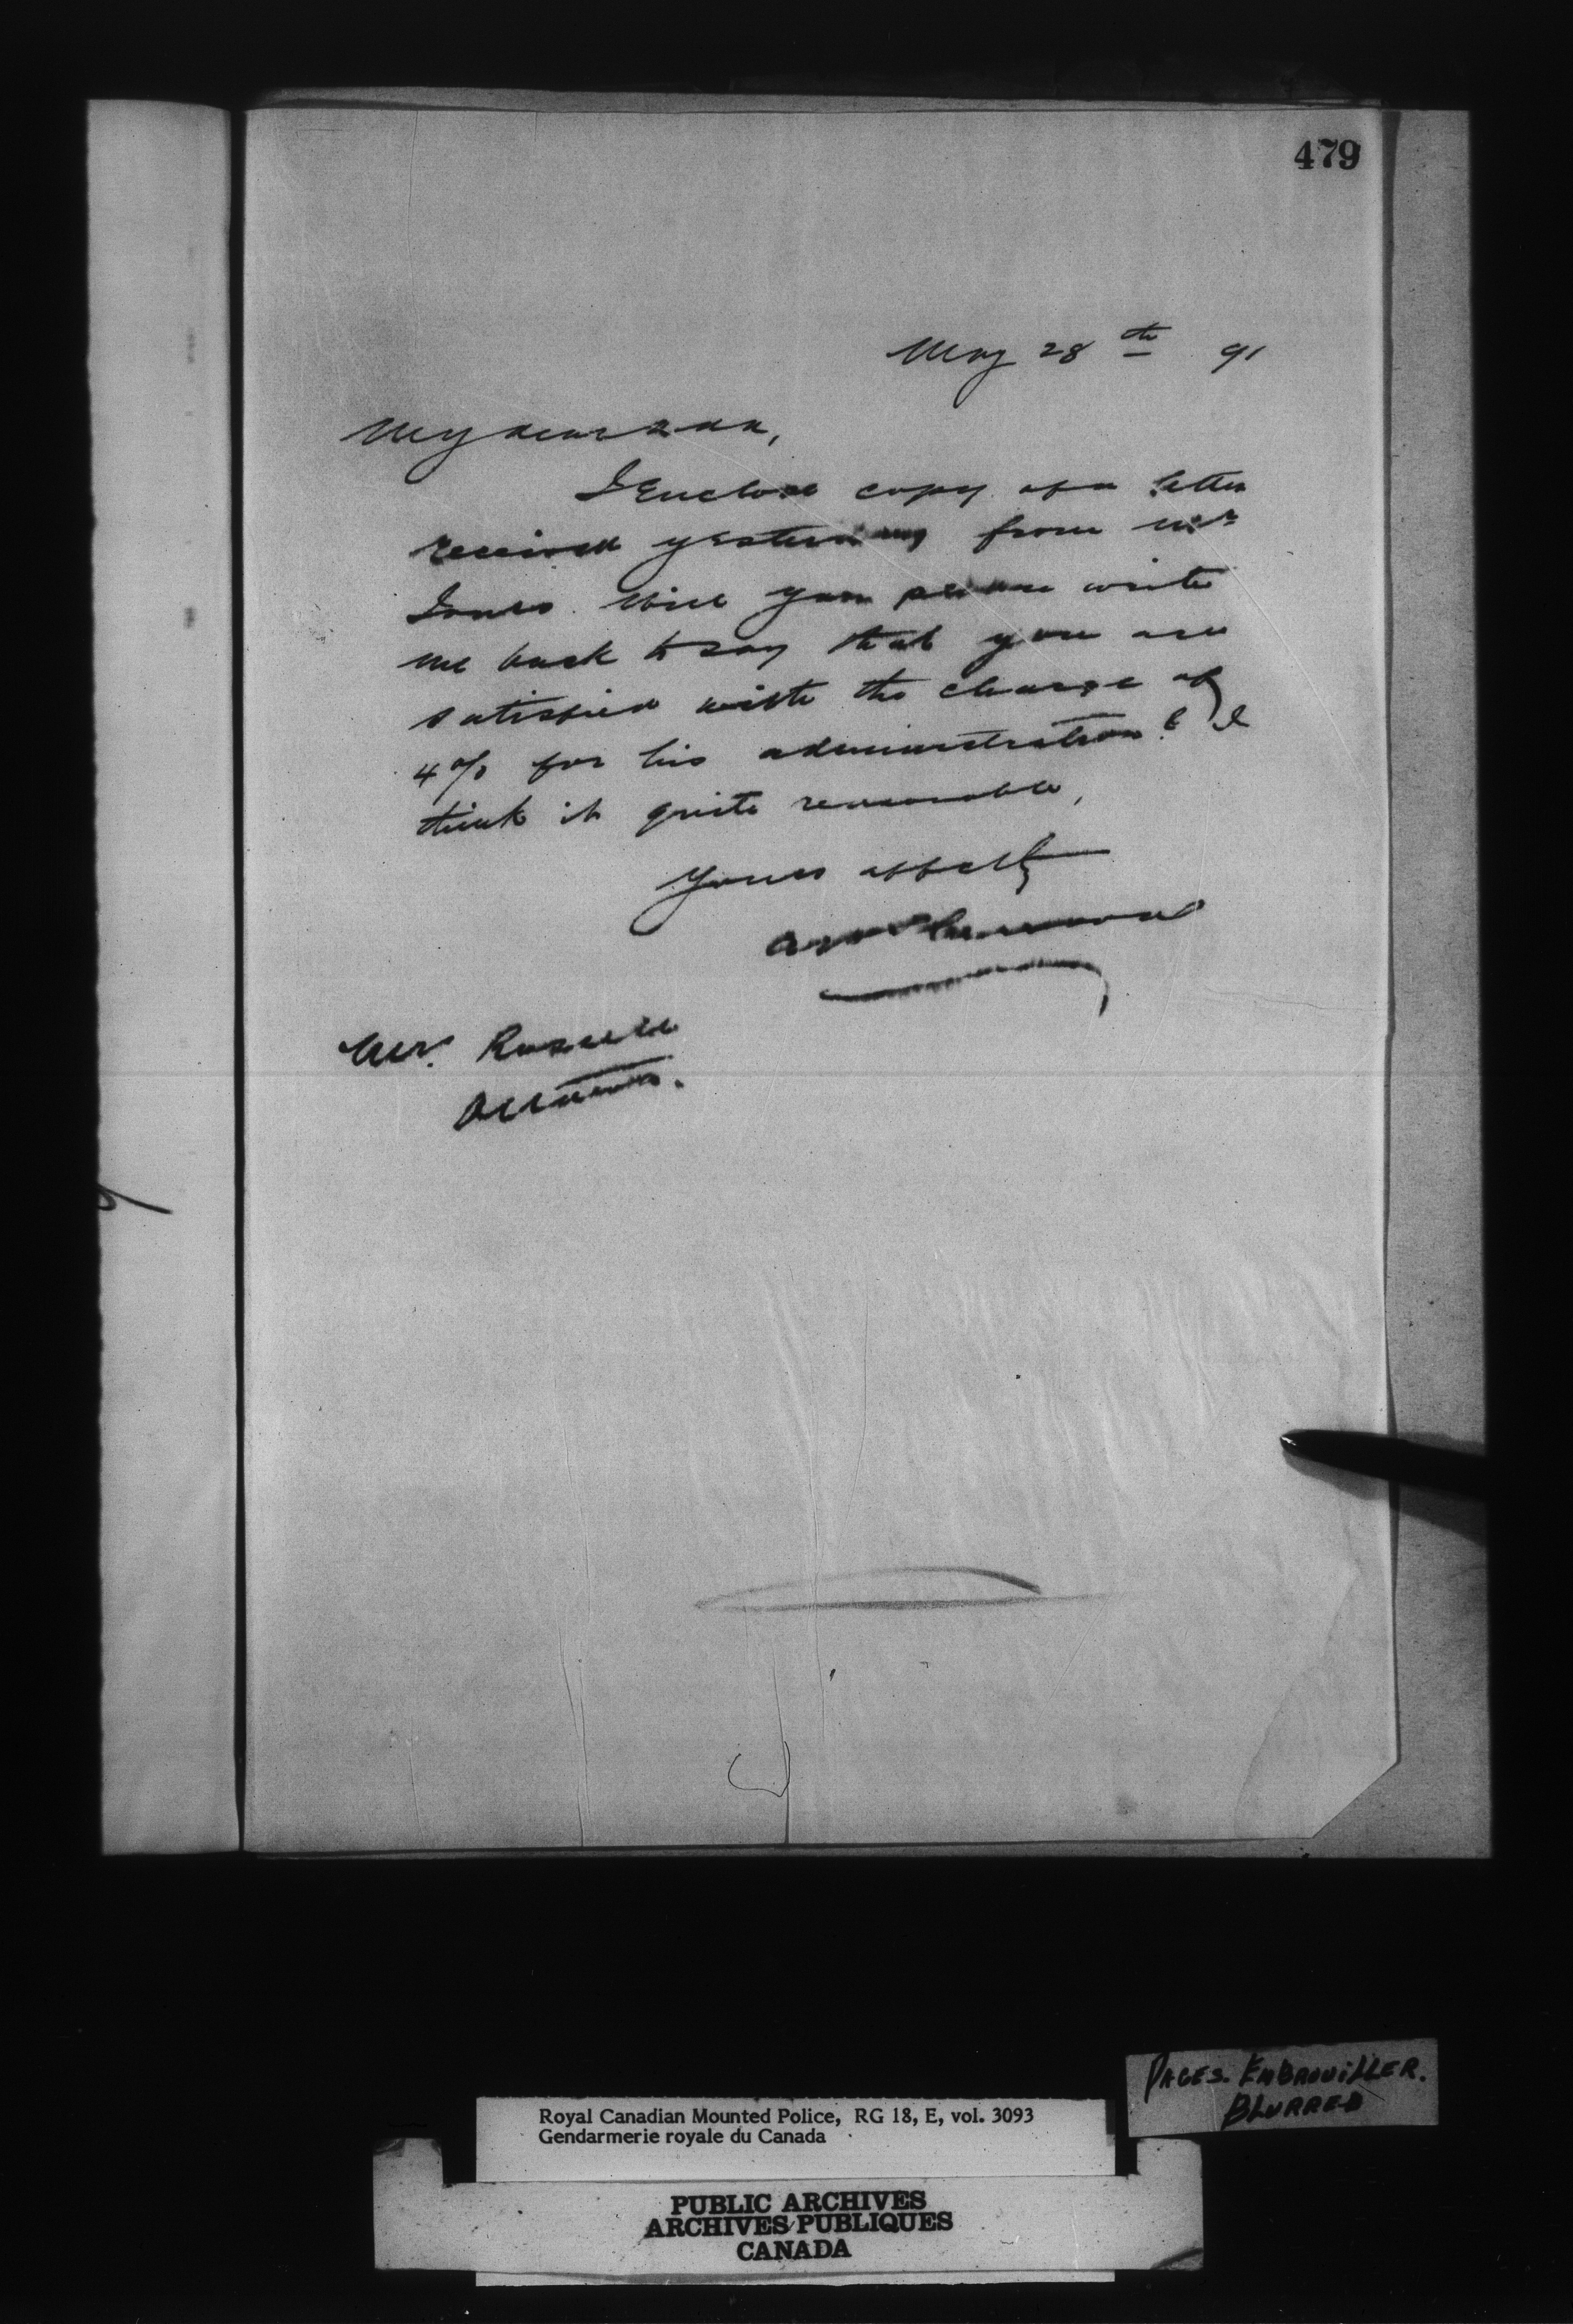 479
May 28th 91
My dear
I Enclose copy of a letter
received yesterday from Mr
Jones. Will you please write
me back to say that you are
satisfied with the charge of
4% for his administration? I
think it quite reasonable,
Yours affectly
Mr. Russell
Ottawa.
PAGES. EMBROUILLER.
BLURRED
Royal Canadian Mounted Police, RG 18, E, vol. 3093
Gendarmerie royale du Canada
PUBLIC ARCHIVES
ARCHIVES PUBLIQUES
CANADA